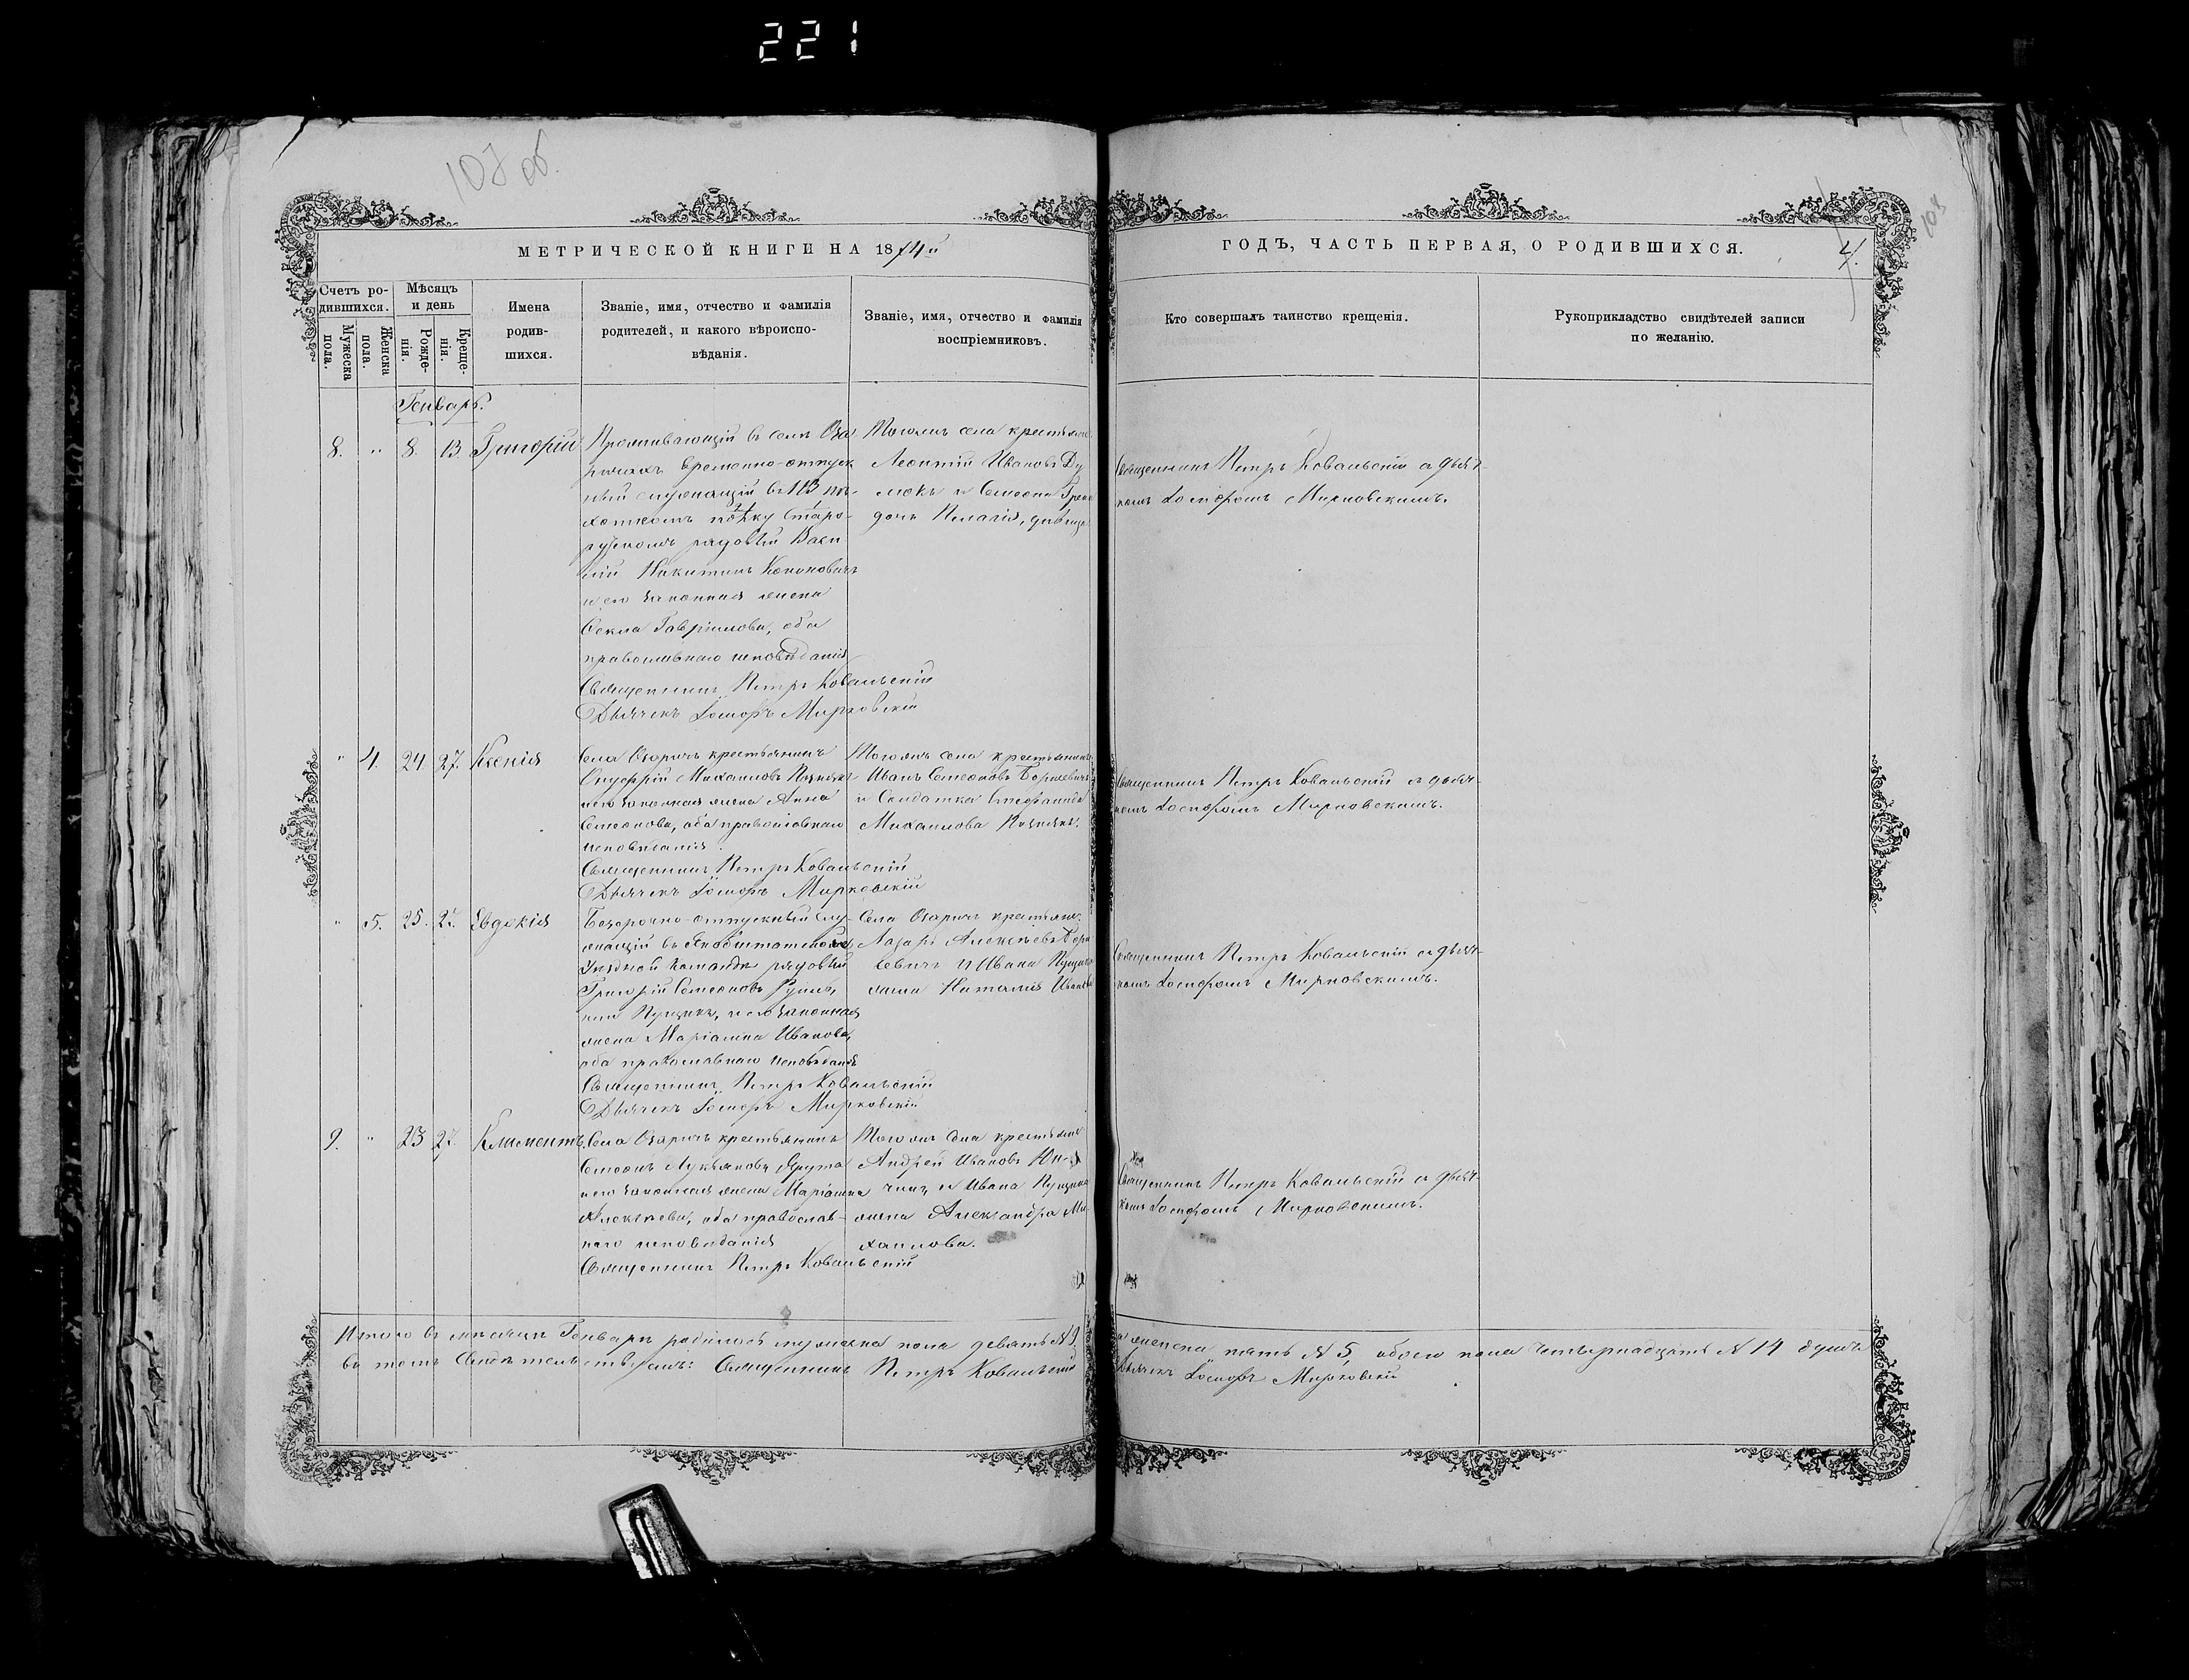 221
107 об.
108
МЕТРИЧЕСКОЙ КНИГИ НА 1874й
ГОДЪ, ЧАСТЬ ПЕРВАЯ, О РОДИВШИХСЯ.
4.
Счетъ ро-
дившихся.
Мужеска
пола.
Женска
пола.
Мѣсяцъ
и день
Рожде-
нія.
Креще-
нія.
Имена
родив-
шихся.
Званіе, имя, отчество и фамилія
родителей, и какого вѣроиспо-
вѣданія.
Званіе, имя, отчество и фамилія
воспріемниковъ.
Кто совершалъ таинство крещенія.
Рукоприкладство свидѣтелей записи
по желанію.
Генварь.
8. " 8. 13. Григорій
Проживающій въ селѣ Оза-
ричахъ временно-отпуск
ный служащій въ 113 пѣ-
хотномъ полку Старо-
русскомъ рядовый Васи
лій Никитинъ Кононовичъ
и его законная жена
Ѳекла Гавріилова, оба
православнаго исповѣданія
Священникъ Петръ Ковальскій
Дьячекъ Іосифъ Мирковскій
Тогожъ села крестьян
Леонтій Ивановъ
и Семеона
дочь Пелагія, дѣвица
Священникъ Петръ Ковальскій съ дьяч-
комъ Іосифомъ Мирковскимъ.
" 4. 24. 27. Ксенія
Села Озаричъ крестьянинъ
Онуфрій Михаиловъ
и его законная жена Анна
Семеонова, оба православнаго
исповѣданія.
Священникъ Петръ Ковальскій
Дьячекъ Іосифъ Мирковскій
Тогожъ села крестьянинъ
Иванъ Семеоновъ Борисевичъ
и Солдатка Стефанида
Михаилова
Священникъ Петръ Ковальскій съ дьяч-
комъ Іосифомъ Мирковскимъ.
" 5. 25. 27. Евдокія
Безсрочно-отпускный слу-
жащій въ
Уѣздной Командѣ рядовый
Григорій Семеоновъ
Пущикъ, и его законная
жена Маріанна Иванова,
оба православнаго исповѣданія
Священникъ Петръ Ковальскій
Дьячекъ Іосифъ Мирковскій
Села Озаричъ крестьян.
Лазарь Алексѣевъ Бори
севичъ и Ивана Пущика
жена Наталія
Священникъ Петръ Ковальскій съ дьяч-
комъ Іосифомъ Мирковскимъ.
9. " 23 27. Климентъ.
Села Озаричъ крестьянинъ
Семеонъ Лукьяновъ Ярута
и его законная жена Маріанна
Алексѣева, оба православ-
наго исповѣданія
Священникъ Петръ Ковальскій
Тогожъ села крестьян
Андрей Ивановъ
и Ивана Пущика
жена Александра Ми-
хаилова.
Священникъ Петръ Ковальскій съ дьяч-
комъ Іосифомъ Мирковскимъ.
Итого въ мѣсяцѣ Генварѣ родилось мужеска пола девять № 9,
а женска пять № 5, обоего пола четырнадцать № 14 душъ
въ томъ свидѣтельствуемъ: Священникъ Петръ Ковальскій
Дьячекъ Іосифъ Мирковскій